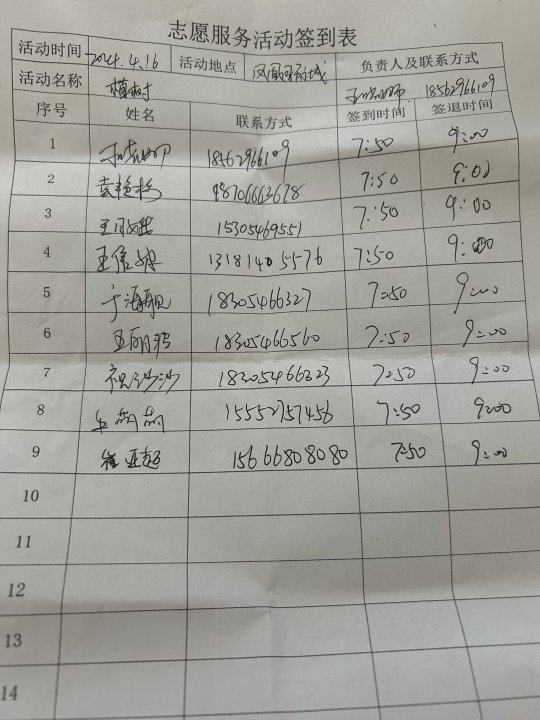 志愿服务活动签到表
活动时间 2024.4.16 活动地点 负责人及联系方式
活动名称 植树 18562966109
序号 姓名 联系方式 签到时间 签退时间
1 18562966109 7:50 9:00
2 7:50 9:00
3 15305469551 7:50 9:00
4 王信 13181405576 7:50 9:00
5 于海 18305466327 7:50 9:00
6 王丽 18305466560 7:50 9:00
7 祝沙沙 18305466323 7:50 9:00
8 15552757456 7:50 9:00
9 崔亚超 15666808080 7:50 9:00
10
11
12
13
14